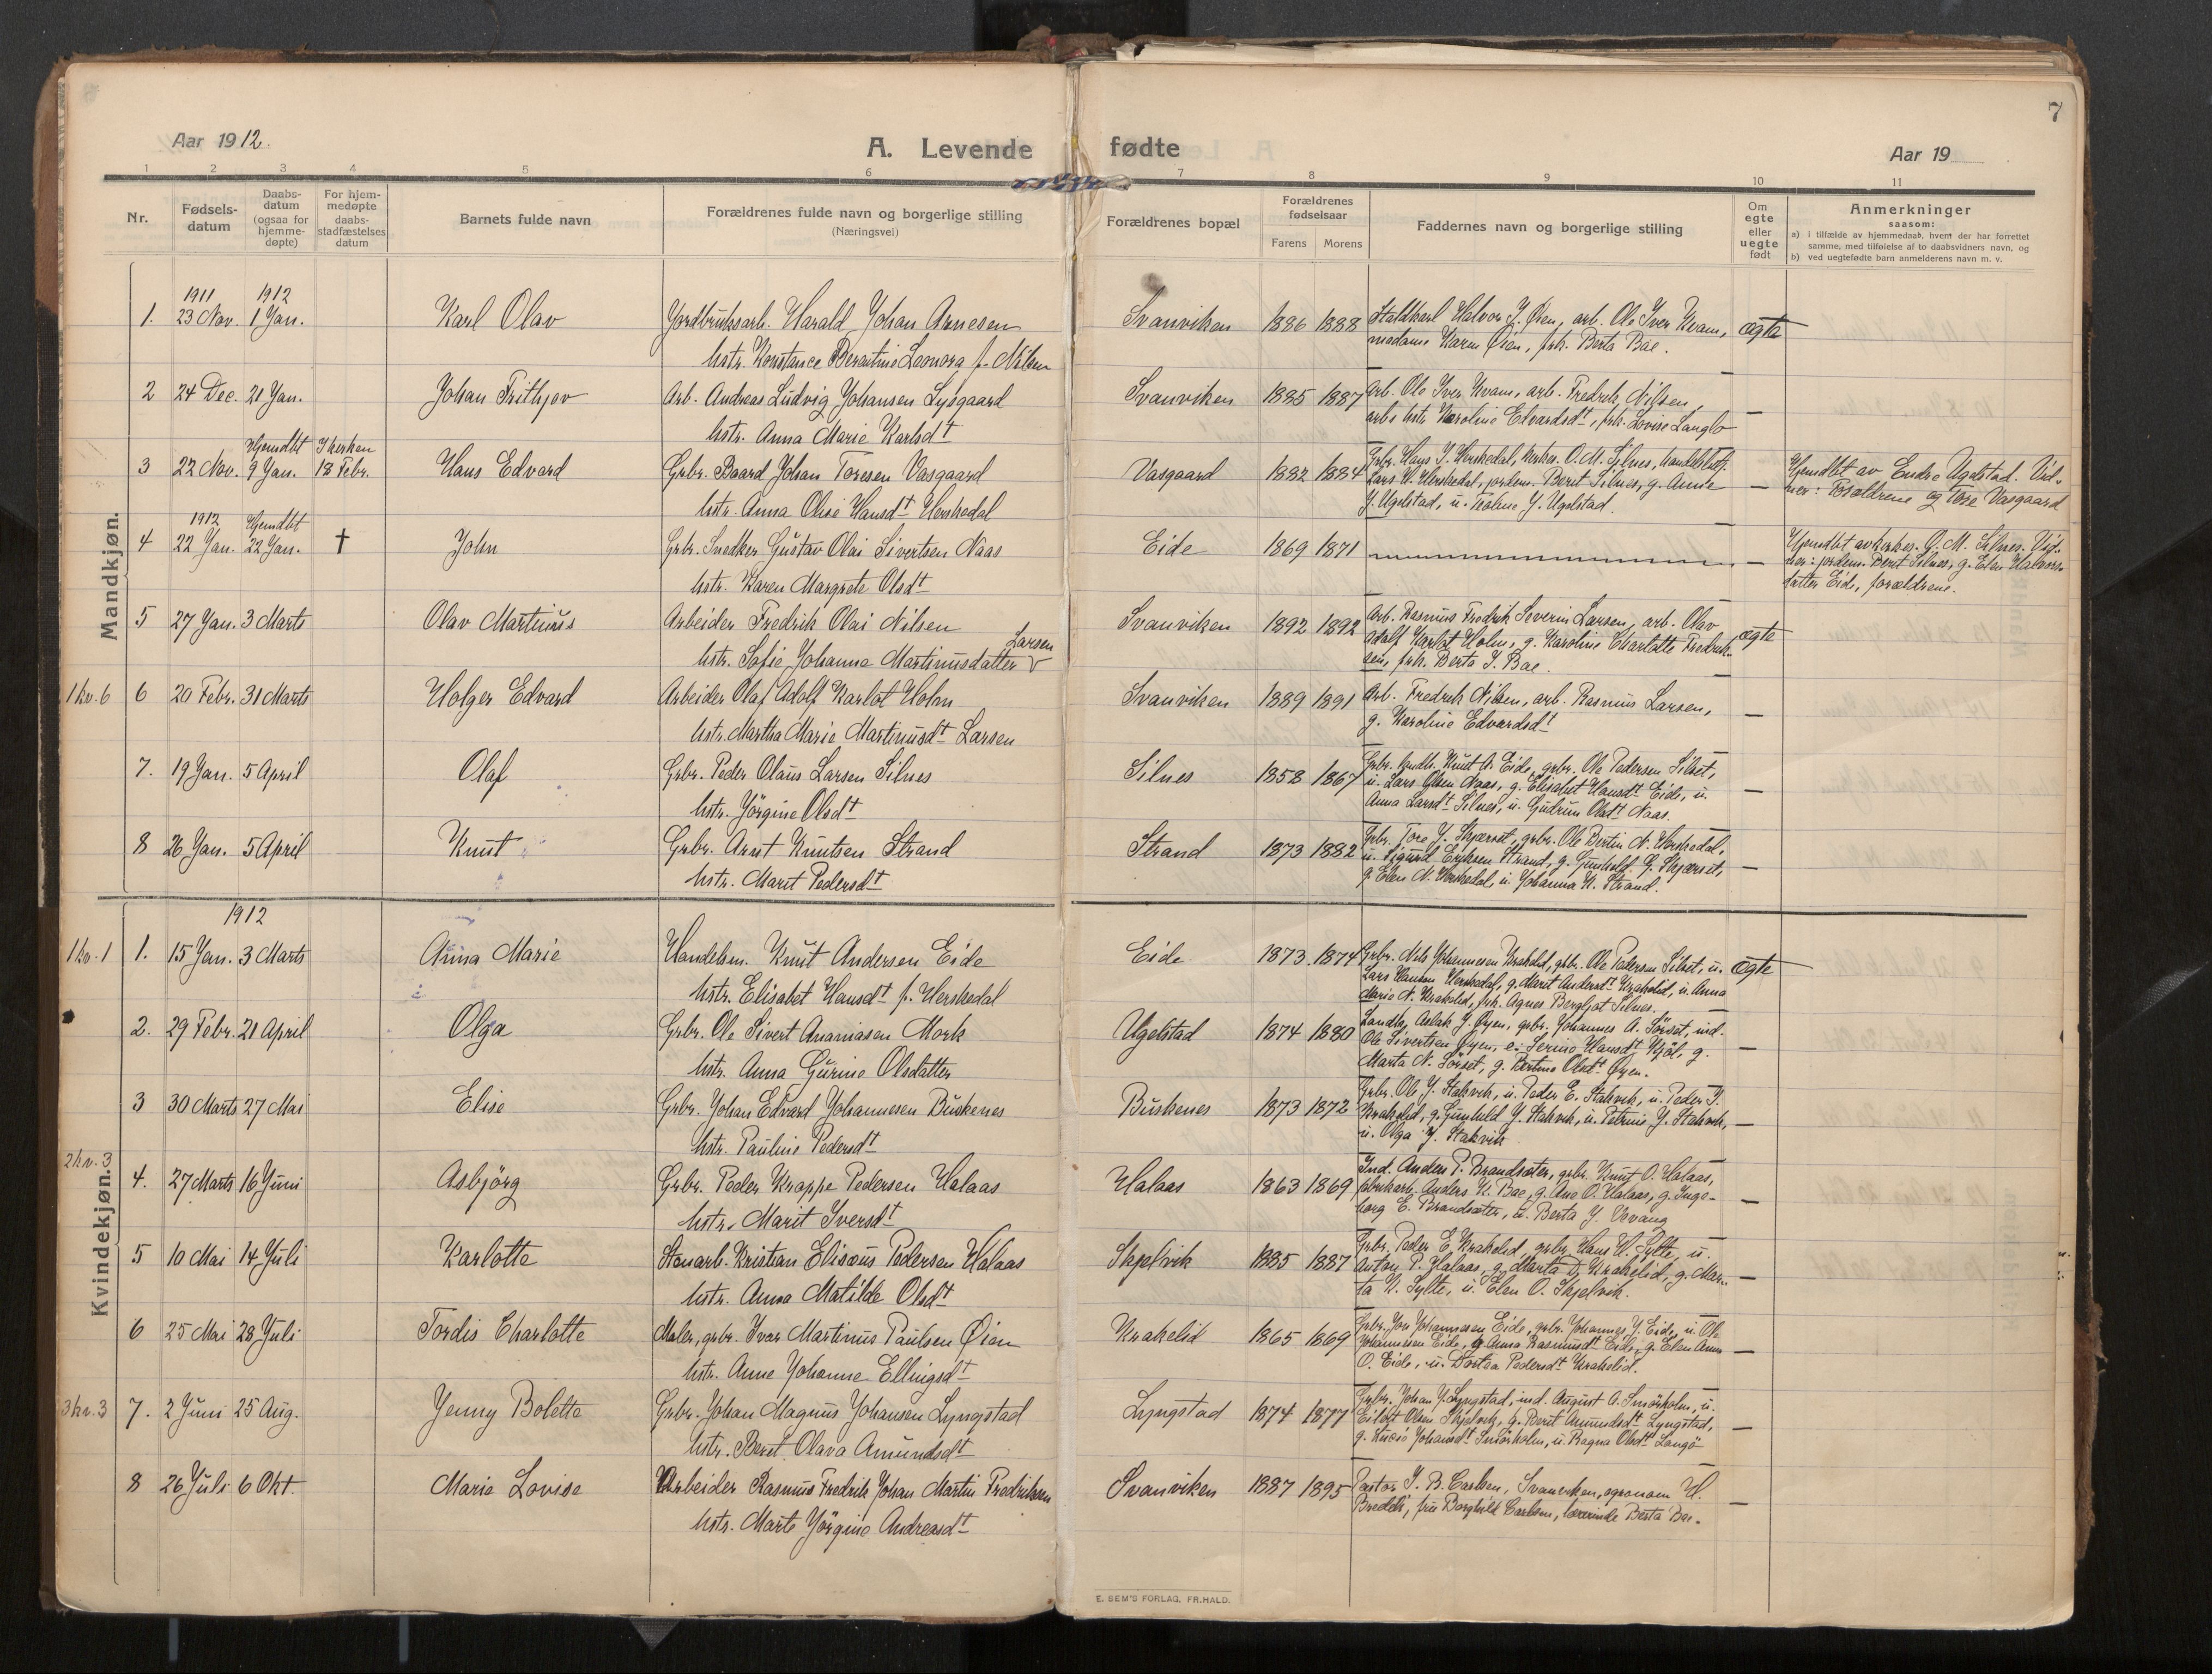 7
Aar 1912.
A. Levende fødte
Aar 19
1 2 3 4 5 6 7 8 9 10 11
Nr.
Fødsels-
datum
Daabs-
datum
(ogsaa for
hjemme-
døpte)
For hjem-
medøpte
daabs-
stadfæstelses
datum
Barnets fulde navn
Forældrenes fulde navn og borgerlige stilling
(Næringsvei)
Forældrenes bopæl
Forældrenes
fødselsaar
Farens Morens
Faddernes navn og borgerlige stilling
Om
egte
eller
uegte
født
Anmerkninger
saasom:
a) i tilfælde av hjemmedaab, hvem der har forrettet
samme, med tilføielse af to daabsvidners navn, og
b) ved uegtefødte barn anmelderens navn m. v.
Mandkjøn.
1911 1912
1. 23 Nov. 1 Jan. Karl Olav
Jordbruksarb. Harald Johan Arnesen
hstr. Konstance Berentine Leonora f. Nilsen
Svanviken 1886 1888
Staldkarl Halvor J. Øien, arb. Ole Iver Kvam,
madame Karen Øien, frk. Berta Bae.
ægte
2 24 Dec. 21 Jan. Johan Frithjov
Arb. Andreas Ludvig Johansen Lysgaard
hstr. Anna Marie Karlsdt
Svanviken 1885 1887
Arb. Ole Iver Kvam, arb. Fredrik Nilsen,
arbs hstr. Karoline Edvardsdt, frk. Lovise Langlo
—
Hjemdbt I kirken
3 22 Nov. 9 Jan. 18 Febr. Hans Edvard
Grbr. Baard Johan Toresen Vasgaard
hstr. Anna Olise Hansdt Herskedal
Vasgaard 1882 1884
Grbr. Hans J. Herskedal, kirkes. O. M. Silnes, Handelsbetj.
Lars H. Herskedal, jordem. Berit Silnes, g. Anne
J. Ugelstad, u. Taline J. Ugelstad.
—
Hjemdbt av Endre Ugelstad. Vid-
ner: Forældrene og Tore Vasgaard
1912 Hjemdbt
4 22 Jan. 22 Jan. † John
Grbr. Snedker Gustav Olai Sivertsen Naas
hstr. Karen Margrete Olsdt
Eide 1869 1871
—
Hjemdbt av kirkes. O. M. Silnes. Vid-
ner: jordem. Berit Silnes, g. Elen Halvors-
datter Eide, forældrene.
5 27 Jan. 3 Marts Olav Martinus
Arbeider Fredrik Olai Nilsen
hstr. Sofie Johanne Martinusdatter Larsen
Svanviken 1892 1892
Arb. Rasmus Fredrik Severin Larsen, arb. Olav
Adolf Karlot Holm, g. Karoline Charlotte Fredrik-
sen, frk. Berta J. Bae.
ægte
1 kv. 6
6 20 Febr. 31 Marts Holger Edvard
Arbeider Olaf Adolf Karlot Holm
hstr. Martha Marie Martinusdt Larsen
Svanviken 1889 1891
Arb. Fredrik Nilsen, arb. Rasmus Larsen,
g. Karoline Edvardsdt
—
7. 19 Jan. 5 April Olaf
Grbr. Peder Olaus Larsen Silnes
hstr. Jörgine Olsdt
Silnes 1858 1867
Grbr. Knut A. Eide, grbr. Ole Pedersen Silset,
u. Lars Olsen Naas, g. Elisabet Hansdt Eide, u.
Anna Larsdt Silnes, u. Gudrun Olsdt Naas.
—
8 26 Jan. 5 April Knut
Grbr. Arnt Knutsen Strand
hstr. Marit Pedersdt
Strand 1873 1882
Grbr. Tore J. Skjærset, grbr. Ole Bertin N. Herskedal,
u. Sigurd Eriksen Strand, g. Gunhild G. Skjærset,
g. Elen N. Herskedal, u. Johanna K. Strand.
—
Kvindekjøn.
1912
1 kv. 1
1. 15 Jan. 3 Marts Anna Marie
Handelsm. Knut Andersen Eide
hstr. Elisabet Hansdt f. Herskedal
Eide 1873 1874
Grbr. Nils Johannesen Krakelid, grbr. Ole Pedersen Silset, u.
Lars Hansen Herskedal, g. Marit Andersdt Krakelid, u. Anna
Marie N. Krakelid, frk. Agnes Bergljot Silnes.
ægte
2. 29 Febr. 21 April Olga
Grbr. Ole Sivert Ananiasen Mork
hstr. Anna Gurine Olsdatter
Ugelstad 1874 1880
Landh. Aslak J. Øyen, grbr. Johannes A. Sörset, ind.
Ole Sivertsen Øyen, e. Serine Hansdt Kjöl, g.
Marta N. Sörset, g. Bertine Olsdt Øyen.
—
3 30 Marts 27 Mai Elise
Grbr. Johan Edvard Johannesen Buskenes
hstr. Pauline Pedersdt
Buskenes 1873 1872
Grbr. Ole J. Stakvik, u. Peder E. Stakvik, u. Peder I.
Krakelid, g. Gunhild J. Stakvik, u. Petrine J. Stakvik,
u. Olga J. Stakvik
—
2 kv. 3
4. 27 Marts 16 Juni Asbjörg
Grbr. Peder Krappe Pedersen Halaas
hstr. Marit Iversdt
Halaas 1863 1869
Ind. Anders P. Brandsæter, grbr. Knut O. Halaas,
fabrikarb. Anders K. Bae, g. Ane O. Halaas, g. Inge-
borg E. Brandsæter, u. Berta J. Vevang
—
5 10 Mai 14 Juli Karlotte
Stenarb. Kristian Elisæus Pedersen Halaas
hstr. Anna Matilde Olsdt
Skjelvik 1885 1887
Grbr. Peder E. Krakelid, grbr. Hans K. Sylte, u.
Anton P. Halaas, g. Marta D. Krakelid, g. Mar-
ta K. Sylte, u. Elen O. Skjelvik.
—
6 25 Mai 28 Juli Tordis Charlotte
Maler, grbr. Ivar Martinus Paulsen Øien
hstr. Anne Johanne Ellingsdt
Krakelid 1865 1869
Grbr. Jon Johannesen Eide, grbr. Johannes J. Eide, u. Ole
Johannesen Eide, g. Anna Rasmusdt Eide, g. Elen Anna
O. Eide, u. Dortea Pedersdt Krakelid.
—
3 kv. 3
7. 2 Juni 25 Aug. Jenny Bolette
Grbr. Johan Magnus Johansen Lyngstad
hstr. Berit Olava Amundsdt
Lyngstad 1874 1877
Grbr. Johan J. Lyngstad, ind. August A. Smörholm, u.
Eilert Olsen Skjelvik, g. Berit Amundsdt Lyngstad,
g. Johansdt Smörholm, u. Ragna Olsdt Langö
—
8 26 Juli 6 Okt. Marie Lovise
Arbeider Rasmus Fredrik Johan Martin Fredriksen
hstr. Marte Jörgine Andreasdt
Svanviken 1887 1895
Pastor J. B. Carlsen, Svanviken, agronom H.
Bredeli, fru Borghild Carlsen, lærerinde Berta Bae.
—
E. SEM'S FORLAG, FR.HALD.